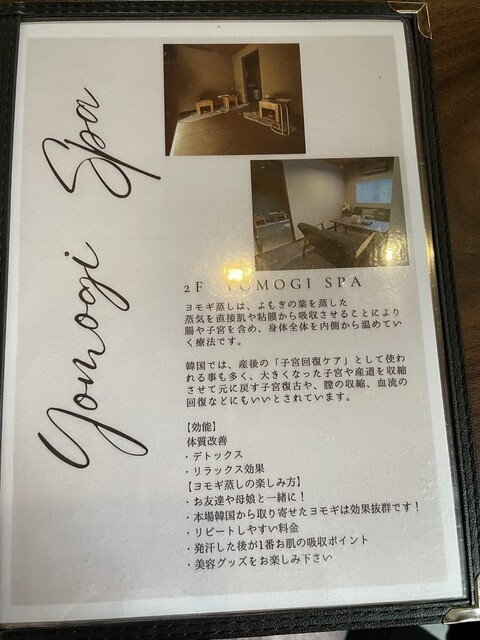 Yomogi Spa
2F YOMOGI SPA
ヨモギ蒸しは、よもぎの葉を蒸した
蒸気を直接肌や粘膜から吸収させることにより
腸や子宮を含め、身体全体を内側から温めてい
く療法です。
韓国では、産後の「子宮回復ケア」として使わ
れる事も多く、大きくなった子宮や産道を収縮
させて元に戻す子宮復古や、膣の収縮、血流の
回復などにもいいとされています。
【効能】
体質改善
・デトックス
・リラックス効果
【ヨモギ蒸しの楽しみ方】
・お友達や母娘と一緒に！
・本場韓国から取り寄せたヨモギは効果抜群です！
・リピートしやすい料金
・発汗した後が1番お肌の吸収ポイント
・美容グッズをお楽しみ下さい